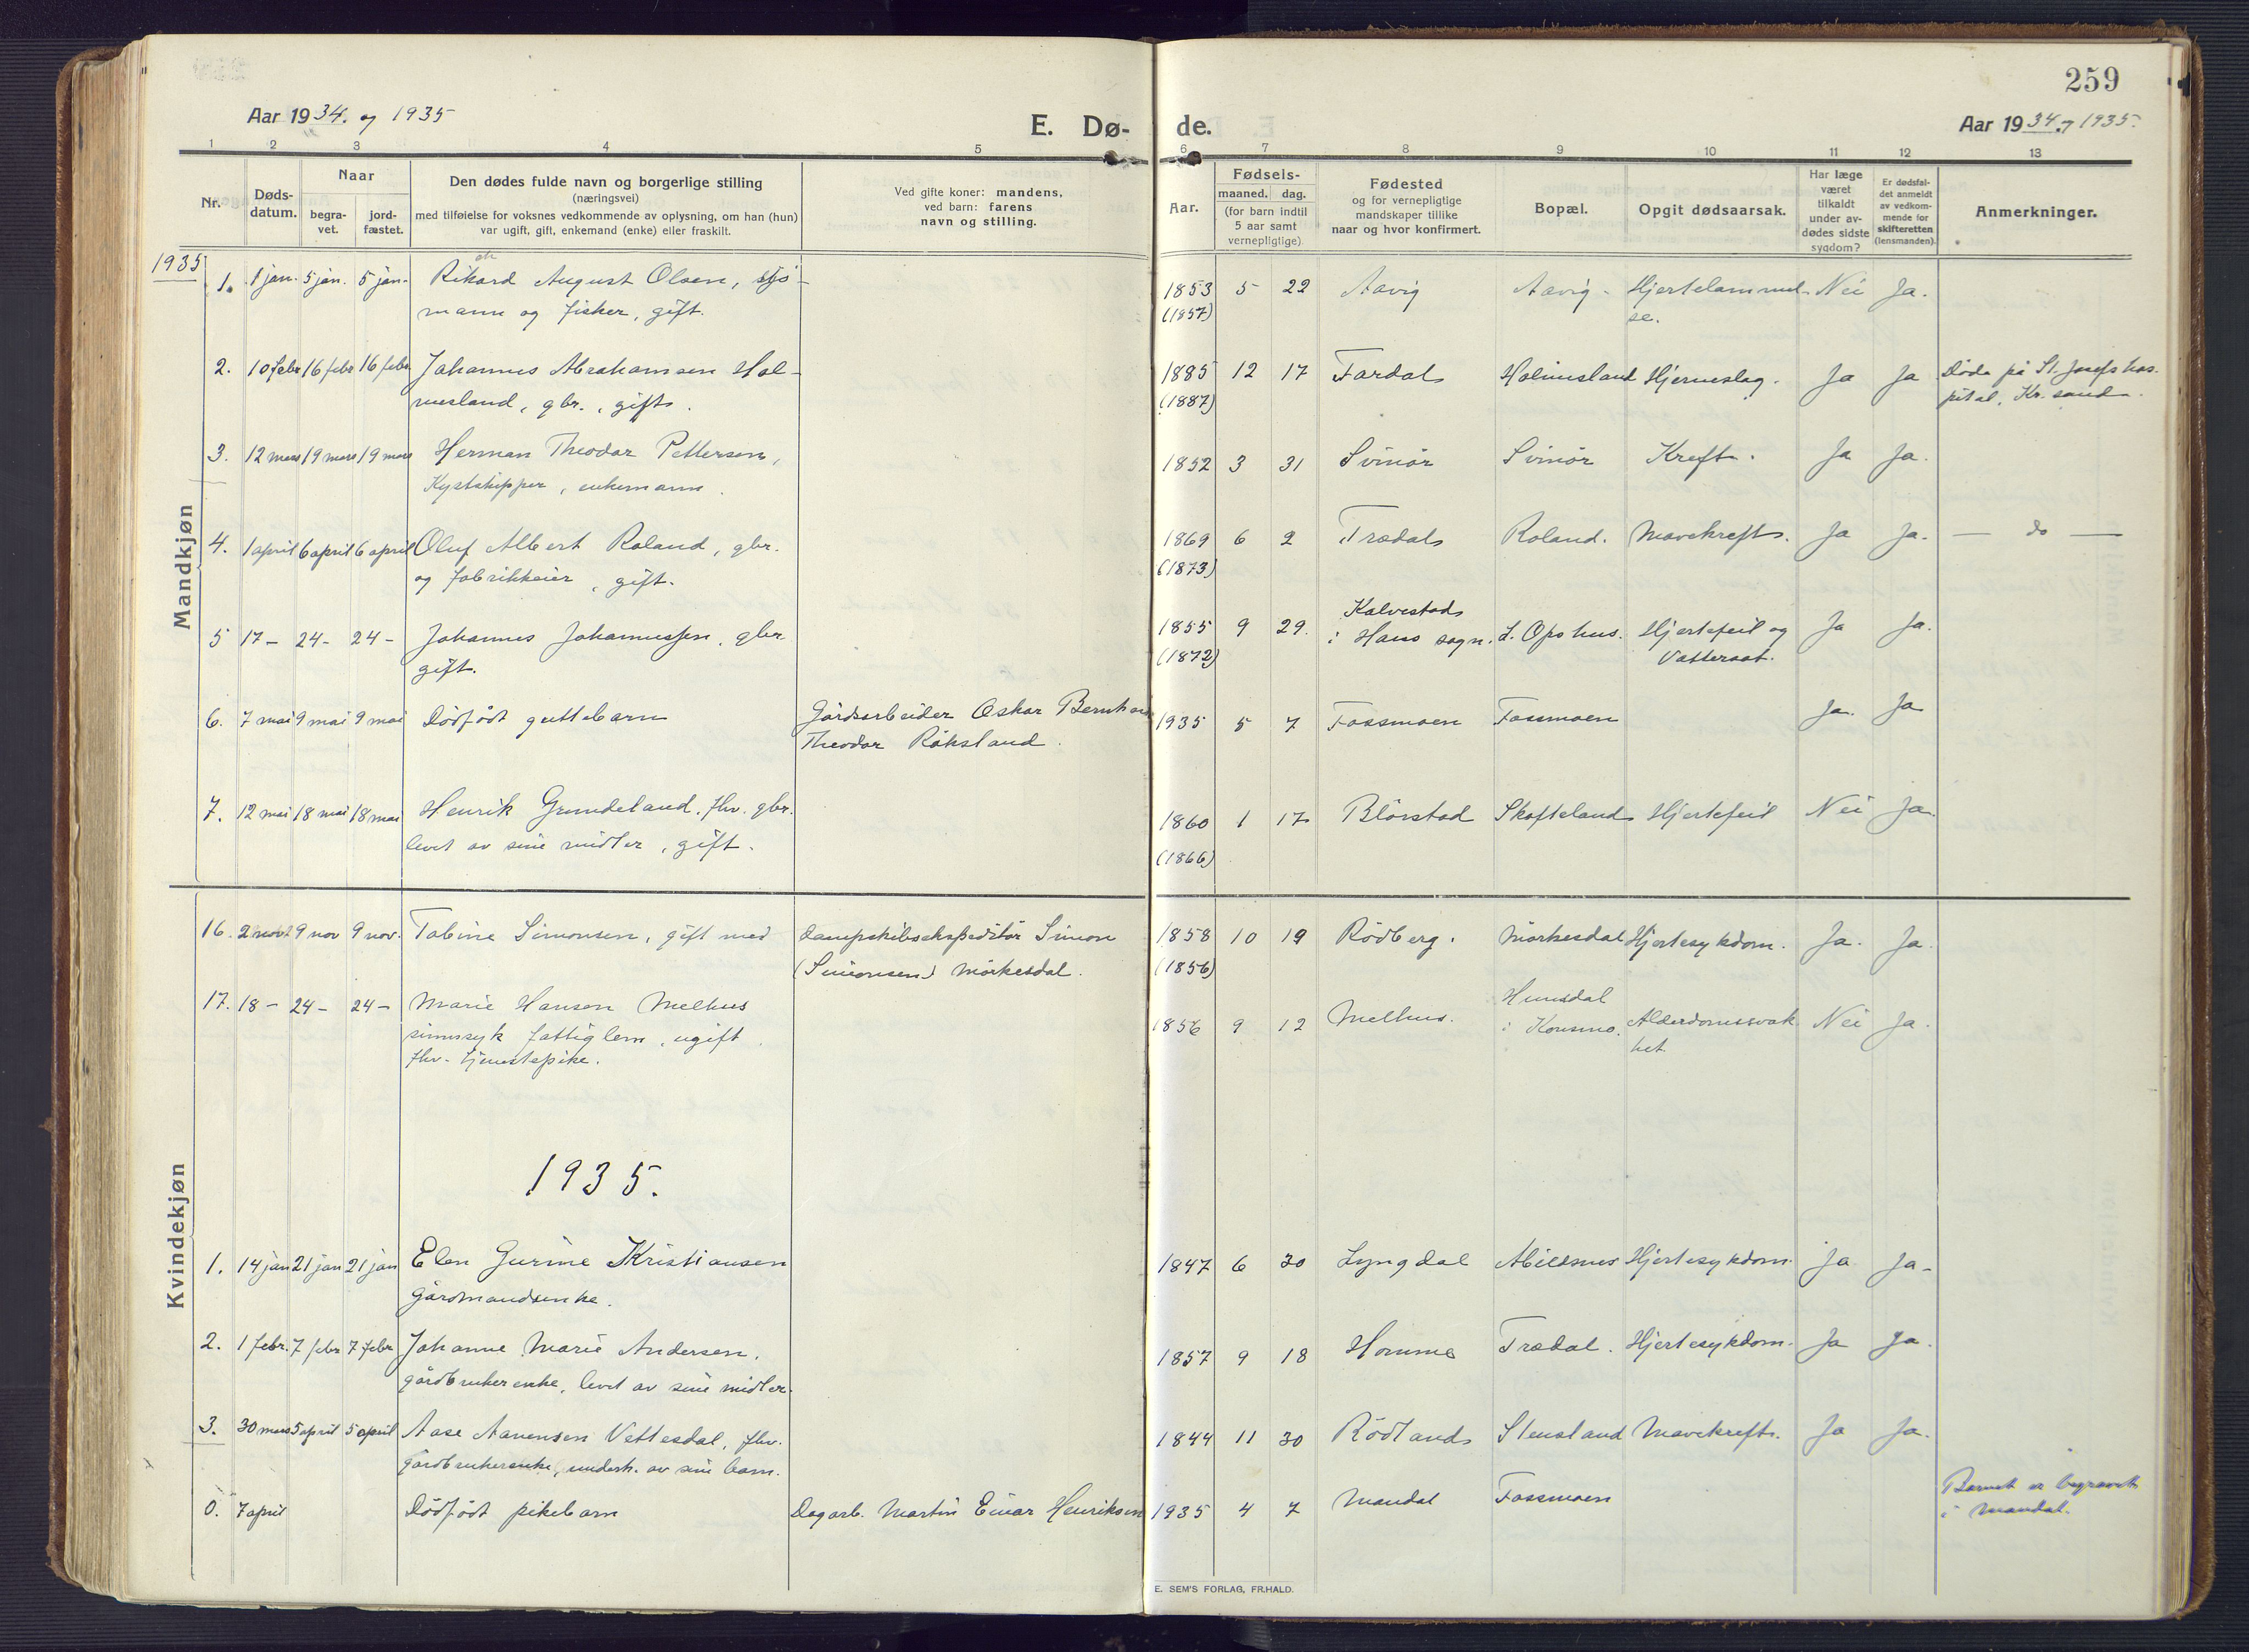 259
Aar 1934. og 1935
E. Dø- de.
Aar 1934. og 1935.
1 2 3 4 5 6 7 8 9 10 11 12 13
Nr.
Døds-
datum.
Naar
begra-
vet.
jord-
fæstet.
Den dødes fulde navn og borgerlige stilling
(næringsvei)
med tilføielse for voksnes vedkommende av oplysning, om han (hun)
var ugift, gift, enkemand (enke) eller fraskilt.
Ved gifte koner: mandens,
ved barn: farens
navn og stilling.
Aar.
Fødsels-
maaned. dag.
(for barn indtil
5 aar samt
vernepligtige)
Fødested
og for vernepligtige
mandskaper tillike
naar og hvor konfirmert.
Bopæl.
Opgit dødsaarsak.
Har læge
været
tilkaldt
under av-
dødes sidste
sygdom?
Er dødsfal-
det anmeldt
av vedkom-
mende for
skifteretten
(lensmanden).
Anmerkninger.
Mandkjøn
1935
1. 1 jan. 5 jan. 5 jan. Rikard August Olsen, sjø- 1853 5 22 Aavig Aavig Hjertelammel- Nei Ja.
mann og fisker, gift. (1857) se.
2. 10 febr 16 febr 16 febr Johannes Abrahamsen Hol- 1885 12 17 Fardal Holmesland Hjerneslag. Ja Ja Døde på St. Josefs hos-
mesland, gbr., gift. (1887) pital, Kr.sand.
3. 12 mars 19 mars 19 mars Herman Theodor Pettersen, 1852 3 31 Svinør Svinør Kreft. Ja Ja.
Kystskipper, enkemann.
4. 1 april 6 april 6 april Oluf Albert Roland, gbr. 1869 6 2 Trædal Roland. Mavekreft. Ja Ja. — do —
og fabrikkeier, gift. (1873)
5 17 - 24 - 24 - Johannes Johannessen, gbr 1855 9 29. Kalvestad L. Opshus. Hjertefeil og Ja Ja.
gift. (1872) i Haus sogn. Vattersot.
6. 7 mai 9 mai 9 mai Dødfødt guttebarn Gårdsarbeider Oskar 1935 5 7 Fossmoen Fossmoen Ja. Ja
Theodor Råksland.
7. 12 mai 18 mai 18 mai Henrik Grundeland, fhv. gbr. 1860 1 17 Blørstad Skofteland Hjertefeil Nei Ja.
levet av sine midler, gift. (1866)
Kvindekjøn
16. 2 nov 9 nov 9 nov. Tobine Simonsen, gift med Dampskibsekspeditør Simon 1858 10 19 Rödberg. Mörkesdal Hjertesykdom. Ja. Ja.
(Simonsen) Mörkesdal. (1856)
17. 18 - 24 - 24 - Marie Hansen Melhus 1856 9 12 Melhus. Hunsdal Alderdomssvak- Nei Ja.
sinnsyk fattiglem, ugift. i Konsmo. het.
fhv. tjenestepike.
1935.
1. 14 jan 21 jan 21 jan Elen Gurine Kristiansen 1847 6 30 Lyngdal Abildsnes Hjertesykdom. Ja Ja.
gårdmandsenke.
2. 1 febr. 7 febr 7 febr Johanne Marie Andersen, 1857 9 18 Homme Trædal. Hjertesykdom. Ja Ja.
gårdbrukerenke, levet av sine midler.
3. 30 mars 5 april 5 april Aase Aanensen Vettesdal, fhv. 1844 11 30 Rödland Stensland Mavekreft. Ja Ja.
gårdbrukerenke, underh. av sine barn.
0. 7 april Dödfödt pikebarn Dagarb. Martin Einar Henriksen 1935 4 7 Mandal Fossmoen Barnet er begravet
i Mandal.
E. SEM'S FORLAG, FR.HALD.